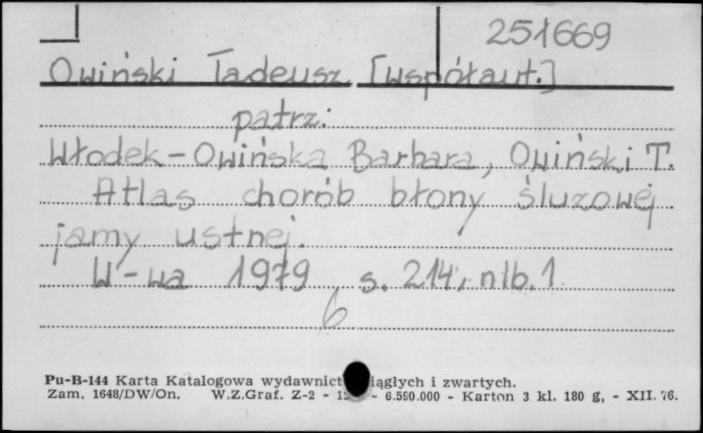 251669
Owiński Tadeusz [współaut.]
patrz:
Włodek-Owińska Barbara, Owiński T.
Atlas chorób błony śluzowej
jamy ustnej.
W-wa 1979 s. 214, nlb. 1
6
Pu-B-144 Karta Katalogowa wydawnict iągłych i zwartych.
Zam. 1648/DW/On. W.Z.Graf. Z-2 - - 6.590.000 - Karton 3 kl. 180 g, - XII. 76.